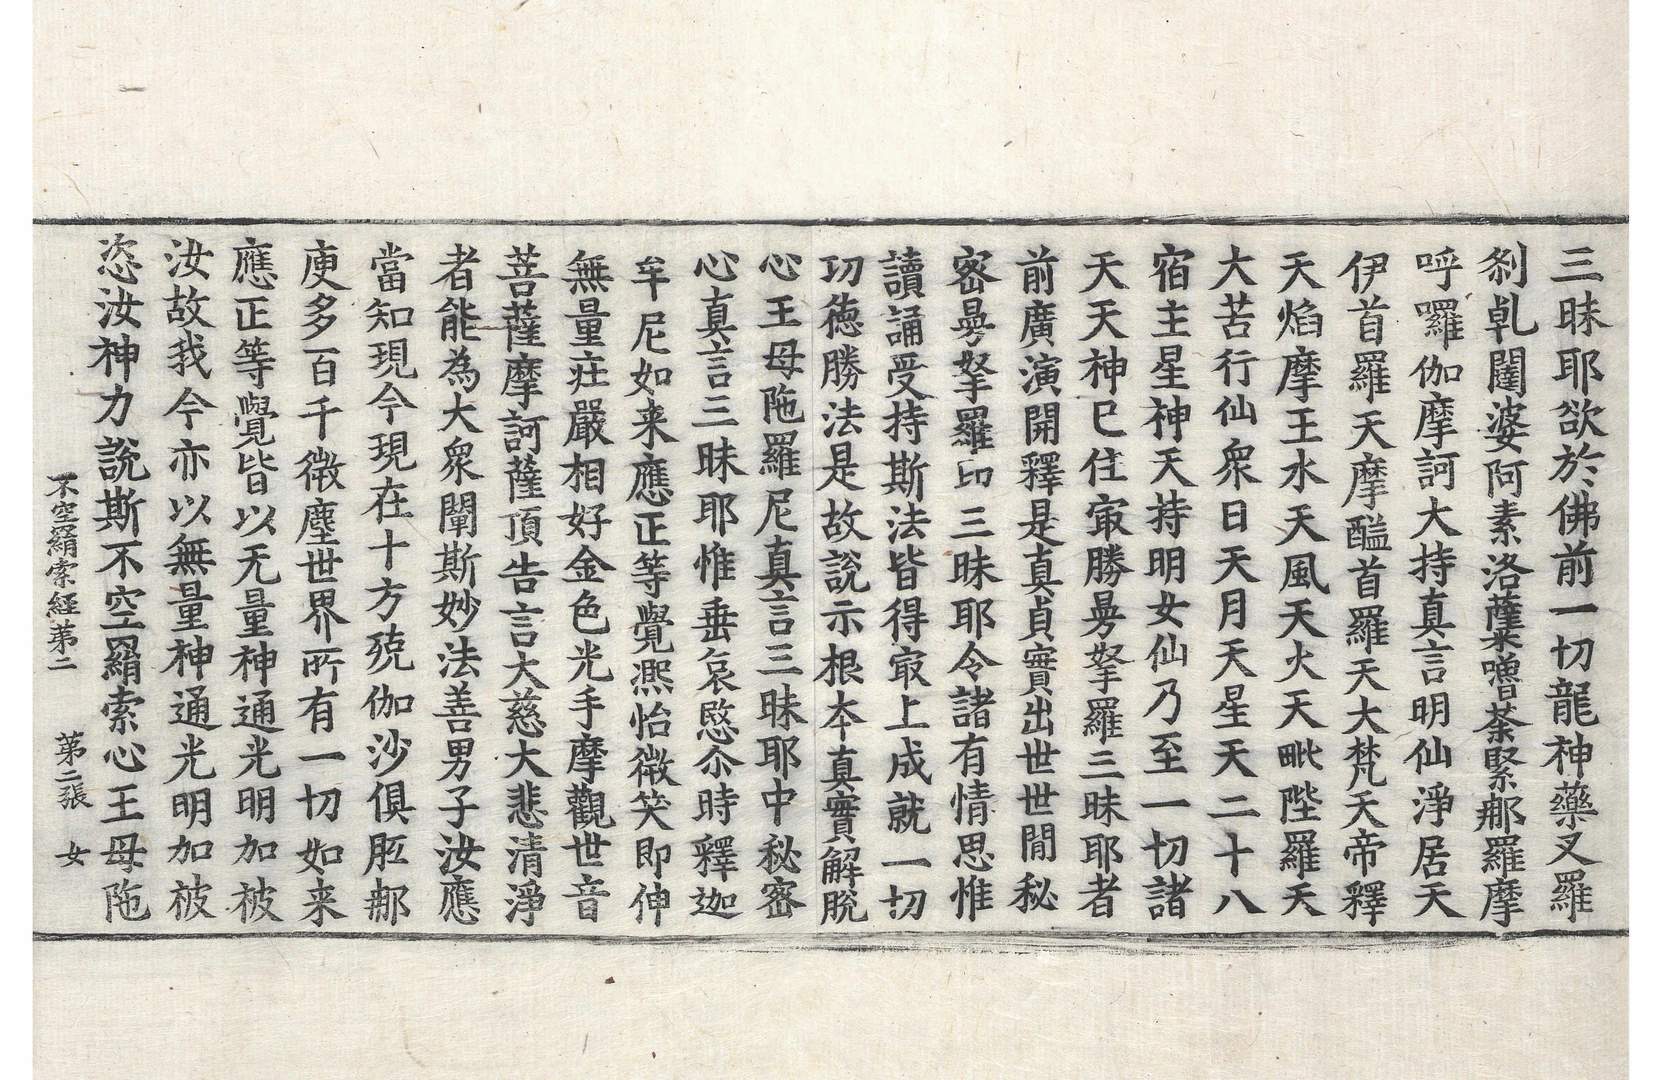 三昧耶欲於佛前一切龍神藥叉羅
剎乹闥婆阿素洛薩櫱嚕荼緊那羅摩
呼囉伽摩訶大持真言明仙淨居天
伊首羅天摩醯首羅天大梵天帝釋
天焰摩王水天風天火天毗陛羅天
大苦行仙衆日天月天星天二十八
宿主星神天持明女仙乃至一切諸
天天神已住㝡勝曼拏羅三昧耶者
前廣演開釋是真貞實出世世間秘
密曼拏羅印三昧耶令諸有情思惟
讀誦受持斯法皆得㝡上成就一切
功德勝法是故說示根夲真實解脫
心王母陁羅尼真言三昧耶中秘密
心真言三昧耶惟垂哀愍尒時釋迦
牟尼如来應正等覺熈怡微笑即伸
無量莊嚴相好金色光手摩觀世音
菩薩摩訶薩頂告言大慈大悲清淨
者能為大衆闡斯妙法善男子汝應
當知現今現在十方殑伽沙俱胝那
庾多百千微塵世界所有一切如来
應正等覺皆以无量神通光明加被
汝故我今亦以無量神通光明加被
恣汝神力說斯不空羂索心王母陁
不空羂索経苐二　苐二張　女